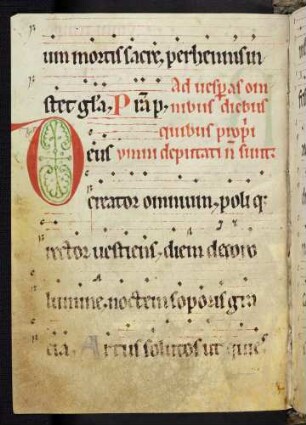 um mortis sacre, perhennis in
stet gl̄a, P̄ra p,
Ad uesp̄as om
nibus diebus
quibus prop̄ri
ymni deputati n̄ sunt.
Deus
creator omnium, poli q;
rector uestiens, diem decoro
lumine, noctem soporis gra
cia. Artus solutos ut quies